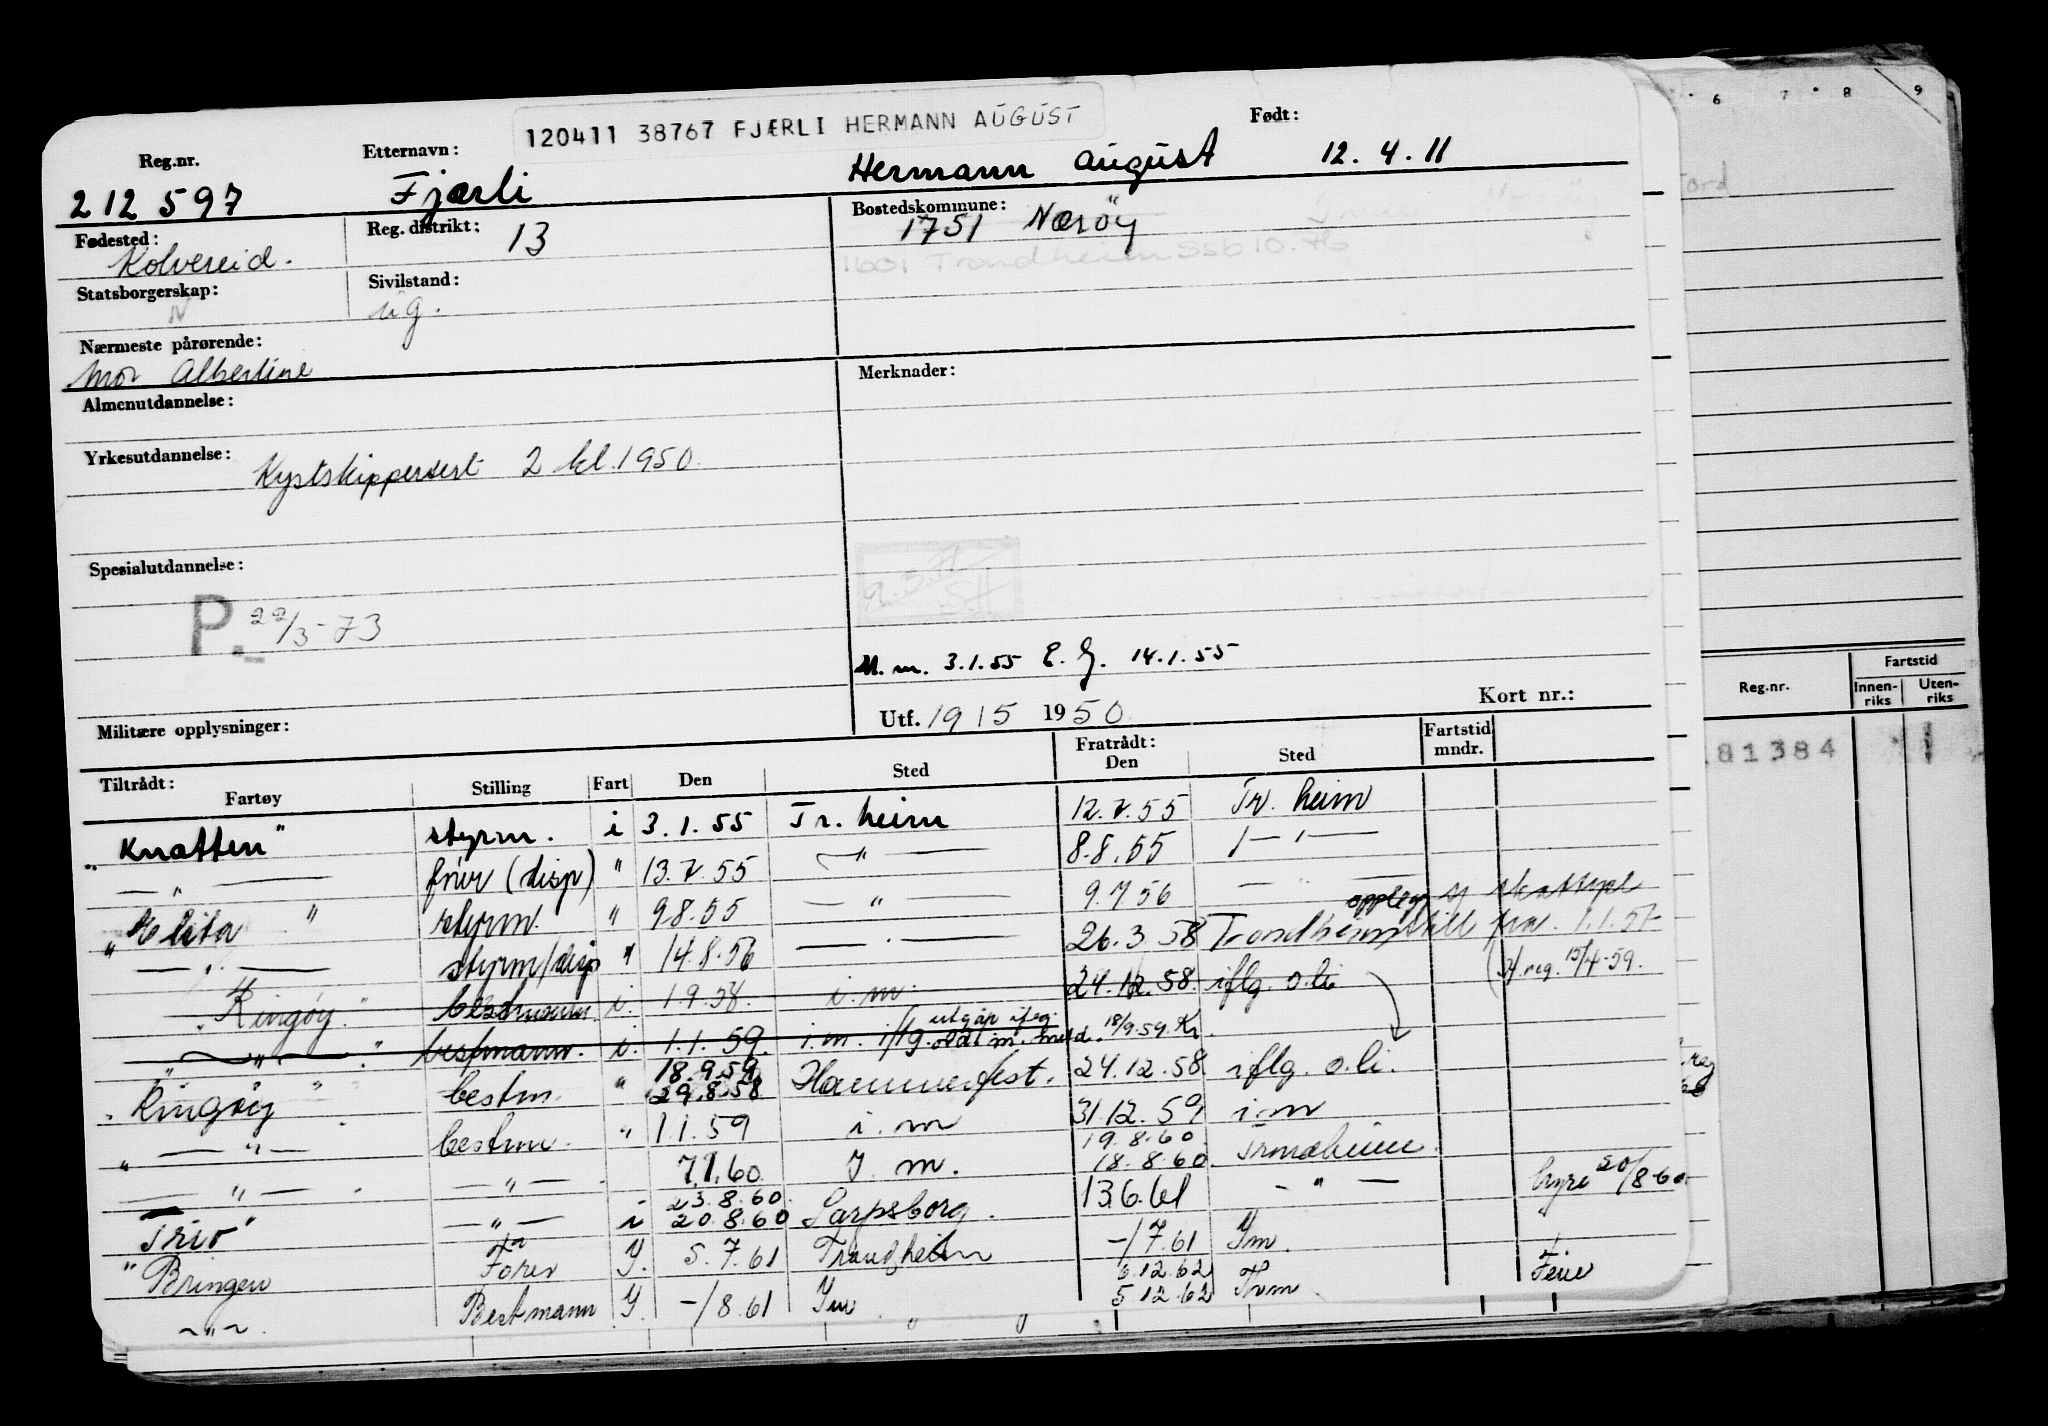 120411 38767 FJÆRLI HERMANN AUGUST
Reg.nr. Etternavn: Født:
212597 Fjærli Hermann august 12.4.11
Fødested: Kolvereid. Reg. distrikt: 13 Bostedskommune: 1751 Nærøy
1601 Trondheim
Statsborgerskap: N Sivilstand: ug.
Nærmeste pårørende:
Mor Albertine
Merknader:
Almenutdannelse:
Yrkesutdannelse: Kystskippersert 2 kl. 1950.
Spesialutdannelse:
P. 22/3-73
M.m. 3.1.55 E.G. 14.1.55
Militære opplysninger: Utf. 1915 1950 Kort nr.:
Tiltrådt: Fratrådt: Fartstid
Fartøy Stilling Fart Den Sted Den Sted mndr.
"Knatten" styrm. i 3.1.55 Tr.heim 12.7.55 Tr. heim
— " — (disp) " 13.7.55 — " — 8.8.55 — " —
" styrm. " 9.8.55 — " — 9.7.56 — " —
opplag
— " — styrm/disp " 14.8.56 — " — 26.3.58 Trondheim till fra 1.1.57
"Ringøy" bestmann. i. 1.9.58. i.m. 24.12.58. iflg. o.li. reg. 15/4-59.
— " — bestmann. i. 1.1.59. i.m. utgår ifølg. m. meld. 18/9.59. Kr.
18.9.59
"Ringøy" bestm. " 29.8.58 Hammerfest. 24.12.58 iflg. o.li.
" — " — bestm. " 1.1.59 i.m 31.12.59 i.m
19.8.60
— " — — " — 7.1.60 I.m. 18.8.60. Trondheim.
23.8.60.
"Trio" — " — i 20.8.60 Sarpsborg. 13.6.61 — " — hyre 20/8-60.
"Bringen Fører Y. 5.7.61 Trondheim -/7.61 Ym.
6.12.62
~ " ~ Bestmann Y. -/8.61 Ym 5.12.62 Thm. Ferie
6 7 8 9
Reg.nr. Fartstid
Innen-riks Uten-riks
81384